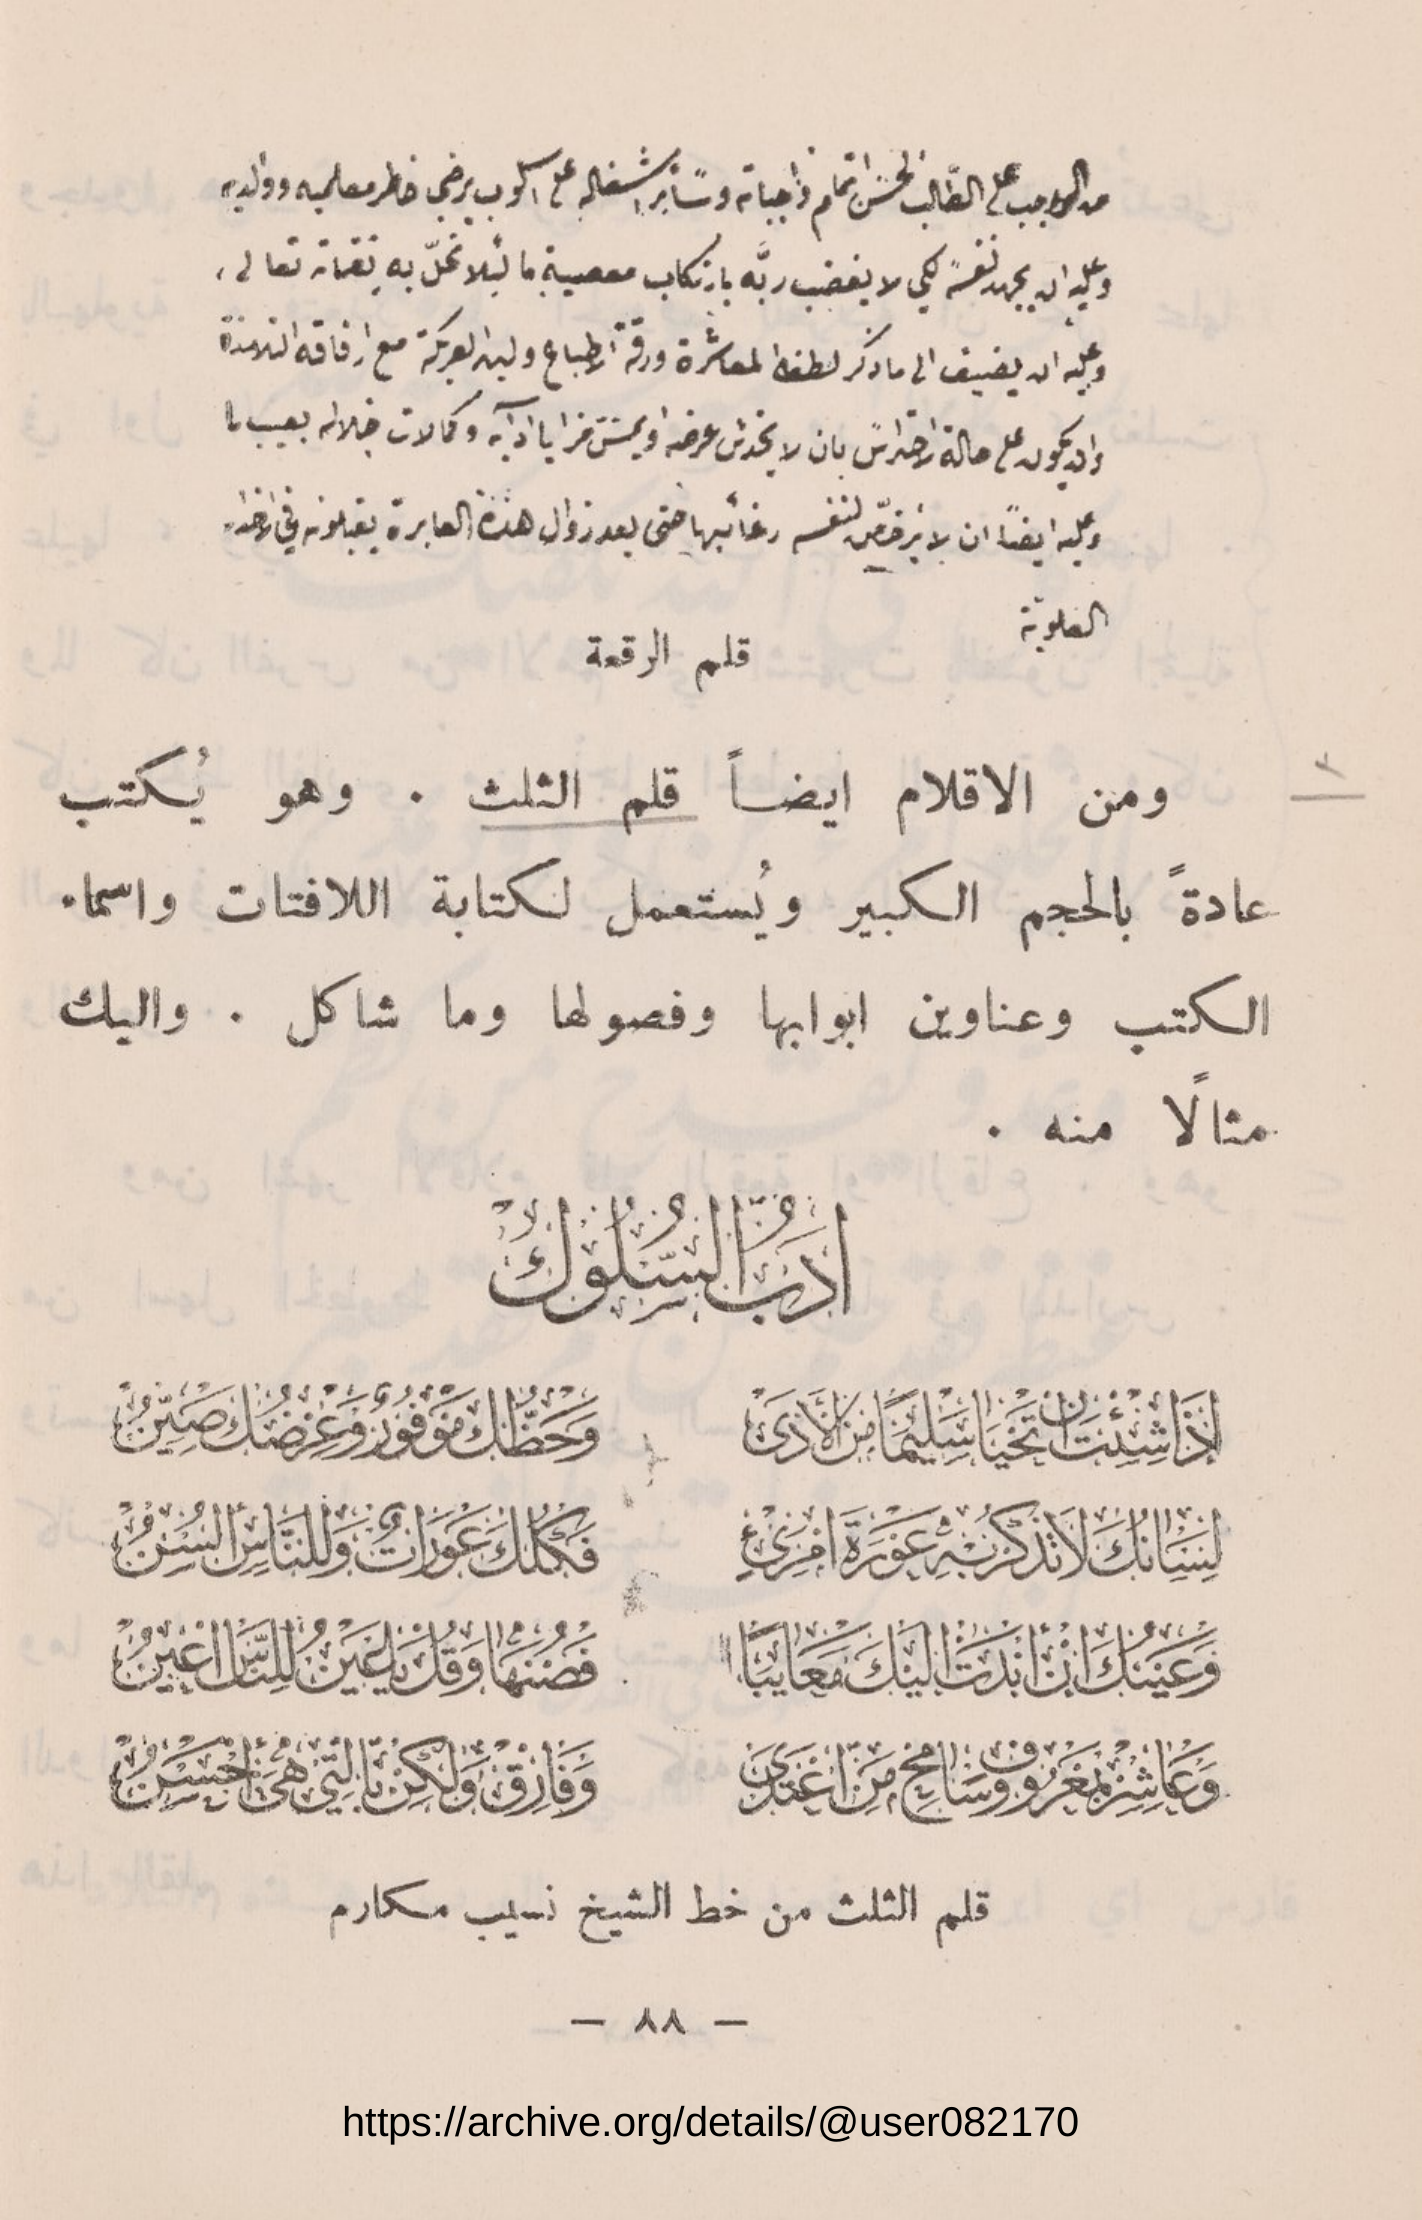 من الواجب على الطالب الحسن اتمام واجباته وسائر اشغاله على اسلوب يرضي خاطر معلميه ووالديه
وعليه ان يجهد نفسه لكي لا يغضب ربَّه بارتكاب معصيةٍ ما لئلا تحلّ به نقماته تعالى ،
وعليه ان يضيف الى ما ذكر لطف المعاشرة ورقة الطباع ولين العريكة مع ارفاقه التلامذة
وان يكون على حالة احتراس بان لا يخدش عرضه او يمسّ مزايا ادابه وكمالات خلاله بعيب ما
وعليه ايضاً ان لا يرخّص لنفسه رغائبها حتى بعد زوال هذه العابرة يقبلونه في
العلوية
قلم الرقعة
ومن الاقلام ايضاً قلم الثلث . وهو يُكتب
عادةً بالحجم الكبير ويُستعمل لكتابة اللافتات واسماء
الكتب وعناوين ابوابها وفصولها وما شاكل . واليك
مثالًا منه .
اَدَبُ السُّلُوكْ
اِذَا شِئْتَ اَنْ تَحْيَا سَلِيْمًا مِنَ الْأَذَىْ وَحَظُّكَ مَوْفُوْرٌ وَعِرْضُكَ صَيِّنُ
لِسَانُكَ لَا تَذْكُرْ بِهِ عَوْرَةَ امْرِئٍ فَكُلُّكَ عَوْرَاتٌ وَلِلنَّاسِ أَلْسُنُ
وَعَيْنُكَ اِنْ اَبْدَتْ اِلَيْكَ مَعَايِبًا فَصُنْهَا وَقُلْ يَا عَيْنُ لِلنَّاسِ اَعْيُنُ
وَعَاشِرْ بِمَعْرُوْفٍ وَسَامِحْ مَنِ اعْتَدَىْ وَفَارِقْ وَلٰكِنْ بِالَّتِيْ هِيَ أَحْسَنُ
قلم الثلث من خط الشيخ نسيب مكارم
— ٨٨ —
https://archive.org/details/@user082170